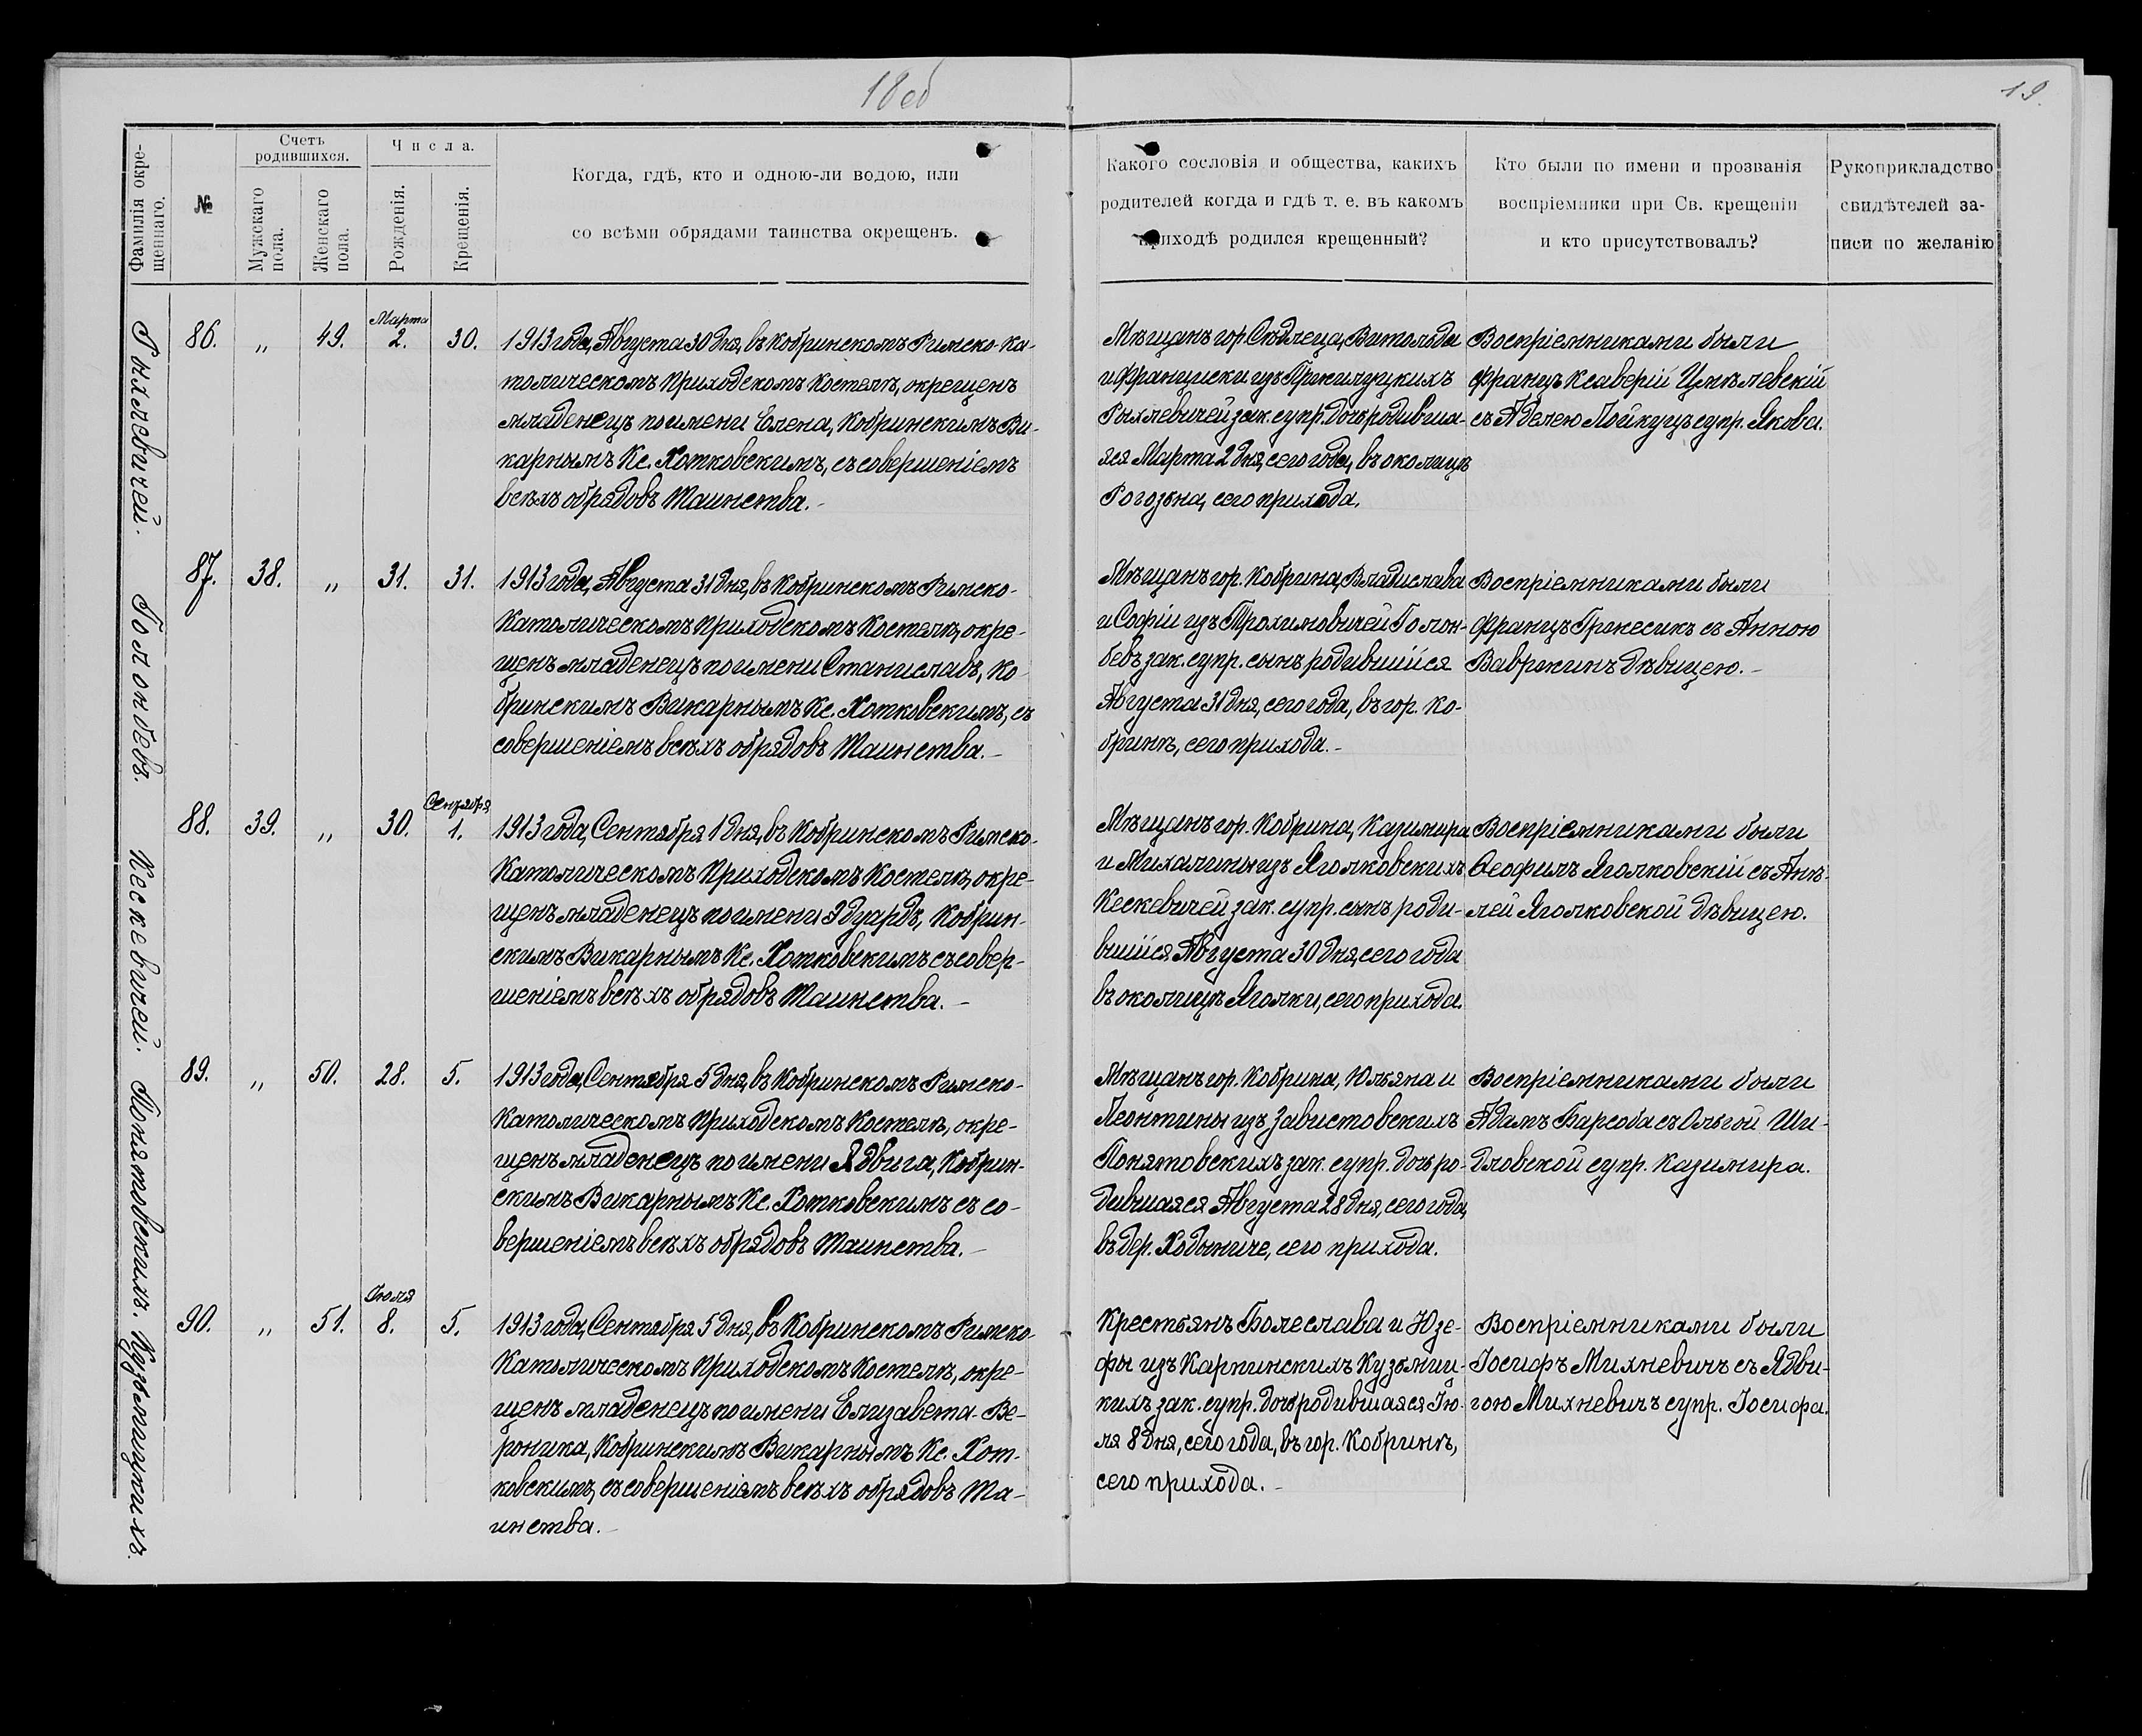 18об
19.
Фамилія окре-
щеннаго.
№
Счетъ
родившихся.
Мужскаго
пола.
Женскаго
пола.
Числа.
Рожденія.
Крещенія.
Когда, гдѣ, кто и одною-ли водою, или
со всѣми обрядами таинства окрещенъ.
Какого сословія и общества, какихъ
родителей когда и гдѣ т. е. въ какомъ
приходѣ родился крещенный?
Кто были по имени и прозванія
воспріемники при Св. крещеніи
и кто присутствовалъ?
Рукоприкладство
свидѣтелей за-
писи по желанію
Рыхлевичей.
86. „ 49. Марта 2. 30.
1913 года, Августа 30 дня, въ Кобринскомъ Римско-Ка-
толическомъ Приходскомъ Костелѣ, окрещенъ
младенецъ по имени Елена, Кобринскимъ Ви-
карнымъ Кс. Хотковскимъ, съ совершеніемъ
всѣхъ обрядовъ Таинства.-
Мѣщанъ гор. Сѣдлеца, Витольда
и Франциски изъ Прилуцкихъ
Рыхлевичей зак. супр. дочь родивша-
яся Марта 2 дня, сего года, въ околицѣ
Рогозьна, сего прихода.
Воспріемниками были
Францъ Ксаверій Цмѣлевскій
съ Аделею Пойкуцъ супр. Якова.
Голонбевъ.
87. 38. „ 31. 31.
1913 года, Августа 31 дня, въ Кобринскомъ Римско-
Католическомъ Приходскомъ Костелѣ, окре-
щенъ младенецъ по имени Станиславъ, Ко-
бринскимъ Викарнымъ Кс. Хотковскимъ, съ
совершеніемъ всѣхъ обрядовъ Таинства.-
Мѣщанъ гор. Кобрина, Владислава
и Софіи изъ Трохимовичей Голон-
бевъ зак. супр. сынъ родившійся
Августа 31 дня, сего года, въ гор. Ко-
бринѣ, сего прихода.-
Воспріемниками были
Францъ Гржесикъ съ Анною
Вавржкинъ дѣвицею.-
Кескевичей.
88. 39. „ 30. Сентября 1.
1913 года, Сентября 1 дня, въ Кобринскомъ Римско-
Католическомъ Приходскомъ Костелѣ, окре-
щенъ младенецъ по имени Эдуардъ, Кобрин-
скимъ Викарнымъ Кс. Хотковскимъ съ совер-
шеніемъ всѣхъ обрядовъ Таинства.-
Мѣщанъ гор. Кобрина, Казимира
и Михалины изъ Яголковскихъ
Кескевичей зак. супр. сынъ роди-
вшійся Августа 30 дня, сего года
въ околицѣ Яголки, сего прихода.
Воспріемниками были
Ѳеофилъ Яголковскій съ Анѣ-
лей Яголковской дѣвицею.
Понятовскихъ.
89. „ 50. 28. 5.
1913 года, Сентября 5 дня, въ Кобринскомъ Римско-
Католическомъ Приходскомъ Костелѣ, окре-
щенъ младенецъ по имени Ядвига, Кобрин-
скимъ Викарнымъ Кс. Хотковскимъ съ со-
вершеніемъ всѣхъ обрядовъ Таинства.-
Мѣщанъ гор. Кобрина, Юльяна и
Леонтины изъ Завистовскихъ
Понятовскихъ зак. супр. дочь ро-
дившаяся Августа 28 дня, сего года,
въ дер. Ходыниче, сего прихода.
Воспріемниками были
Адамъ Барсоба съ Ольгой Ши-
дловской супр. Казимира.
Кузьмицкихъ.
90. „ 51. Іюля 8. 5.
1913 года, Сентября 5 дня, въ Кобринскомъ Римско-
Католическомъ Приходскомъ Костелѣ, окре-
щенъ младенецъ по имени Елизавета-Ве-
роника, Кобринскимъ Викарнымъ Кс. Хот-
ковскимъ, съ совершеніемъ всѣхъ обрядовъ Та-
инства.-
Крестьянъ Болеслава и Юзе-
фы изъ Карпинскихъ Кузьмиц-
кихъ зак. супр. дочь родившаяся Ію-
ля 8 дня, сего года, въ гор. Кобринѣ,
сего прихода.-
Воспріемниками были
Іосифъ Михневичъ съ Ядви-
гою Михневичъ супр. Іосифа.